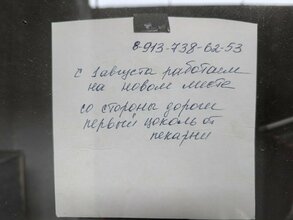 8-913-738-62-53
с 1 августа работаем
на новом месте
со стороны дороги
первый цоколь от
пекарни